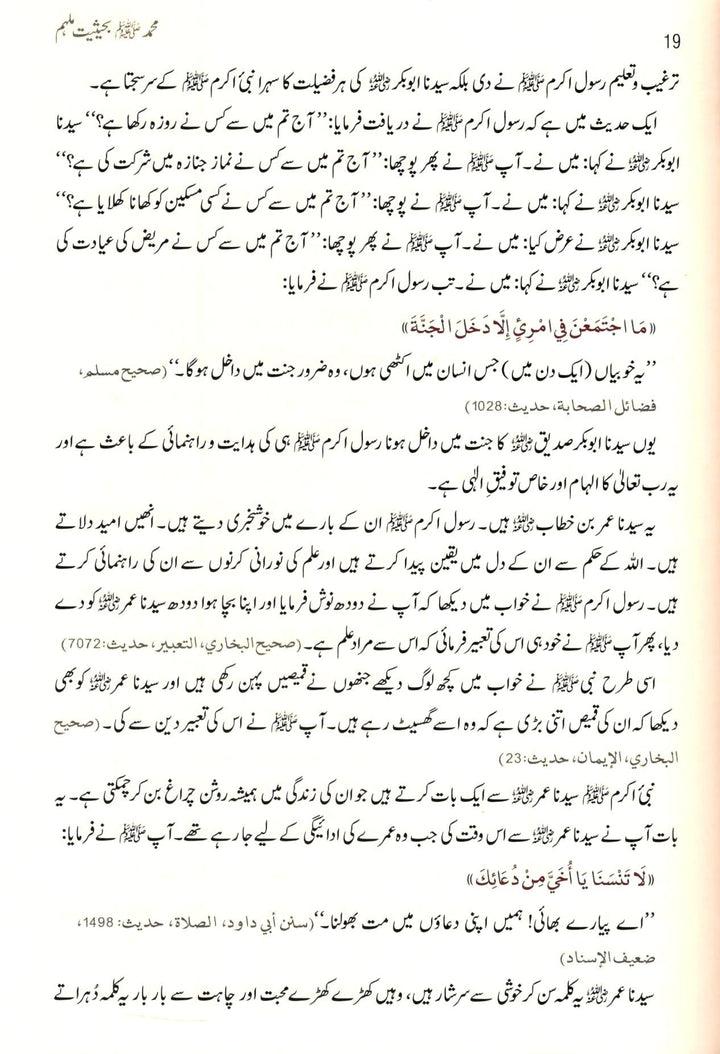 19
محمد ﷺ بحیثیت ملہم
ترغیب وتعلیم رسول اکرم ﷺ نے دی بلکہ سیدنا ابوبکر رضی اللہ عنہ کی ہر فضیلت کا سہرا نبیٔ اکرم ﷺ کے سر سجتا ہے۔
ایک حدیث میں ہے کہ رسول اکرم ﷺ نے دریافت فرمایا: ’’آج تم میں سے کس نے روزہ رکھا ہے؟‘‘ سیدنا
ابوبکر رضی اللہ عنہ نے کہا: میں نے۔ آپ ﷺ نے پھر پوچھا: ’’آج تم میں سے کس نے نماز جنازہ میں شرکت کی ہے؟‘‘
سیدنا ابوبکر رضی اللہ عنہ نے کہا: میں نے۔ آپ ﷺ نے پوچھا: ’’آج تم میں سے کس نے کسی مسکین کو کھانا کھلایا ہے؟‘‘
سیدنا ابوبکر رضی اللہ عنہ نے عرض کیا: میں نے۔ آپ ﷺ نے پھر پوچھا: ’’آج تم میں سے کس نے مریض کی عیادت کی
ہے؟‘‘ سیدنا ابوبکر رضی اللہ عنہ نے کہا: میں نے۔ تب رسول اکرم ﷺ نے فرمایا:
«مَا اجْتَمَعْنَ فِي امْرِئٍ إِلَّا دَخَلَ الْجَنَّةَ»
’’یہ خوبیاں (ایک دن میں) جس انسان میں اکٹھی ہوں، وہ ضرور جنت میں داخل ہوگا۔‘‘ (صحیح مسلم،
فضائل الصحابة، حدیث: 1028)
یوں سیدنا ابوبکر صدیق رضی اللہ عنہ کا جنت میں داخل ہونا رسول اکرم ﷺ ہی کی ہدایت و راہنمائی کے باعث ہے اور
یہ رب تعالیٰ کا الہام اور خاص توفیقِ الٰہی ہے۔
یہ سیدنا عمر بن خطاب رضی اللہ عنہ ہیں۔ رسول اکرم ﷺ ان کے بارے میں خوشخبری دیتے ہیں۔ انھیں امید دلاتے
ہیں۔ اللہ کے حکم سے ان کے دل میں یقین پیدا کرتے ہیں اور علم کی نورانی کرنوں سے ان کی راہنمائی کرتے
ہیں۔ رسول اکرم ﷺ نے خواب میں دیکھا کہ آپ نے دودھ نوش فرمایا اور اپنا بچا ہوا دودھ سیدنا عمر رضی اللہ عنہ کو دے
دیا، پھر آپ ﷺ نے خود ہی اس کی تعبیر فرمائی کہ اس سے مراد علم ہے۔ (صحیح البخاري، التعبیر، حدیث: 7072)
اسی طرح نبی ﷺ نے خواب میں کچھ لوگ دیکھے جنھوں نے قمیصیں پہن رکھی ہیں اور سیدنا عمر رضی اللہ عنہ کو بھی
دیکھا کہ ان کی قمیص اتنی بڑی ہے کہ وہ اسے گھسیٹ رہے ہیں۔ آپ ﷺ نے اس کی تعبیر دین سے کی۔ (صحیح
البخاري، الإیمان، حدیث: 23)
نبیٔ اکرم ﷺ سیدنا عمر رضی اللہ عنہ سے ایک بات کرتے ہیں جو ان کی زندگی میں ہمیشہ روشن چراغ بن کر چمکتی ہے۔ یہ
بات آپ نے سیدنا عمر رضی اللہ عنہ سے اس وقت کی جب وہ عمرے کی ادائیگی کے لیے جا رہے تھے۔ آپ ﷺ نے فرمایا:
«لَا تَنْسَنَا يَا أُخَيَّ مِنْ دُعَائِكَ»
’’اے پیارے بھائی! ہمیں اپنی دعاؤں میں مت بھولنا۔‘‘ (سنن أبي داود، الصلاة، حدیث: 1498،
ضعیف الإسناد)
سیدنا عمر رضی اللہ عنہ یہ کلمہ سن کر خوشی سے سرشار ہیں، وہیں کھڑے کھڑے محبت اور چاہت سے بار بار یہ کلمہ دُہراتے